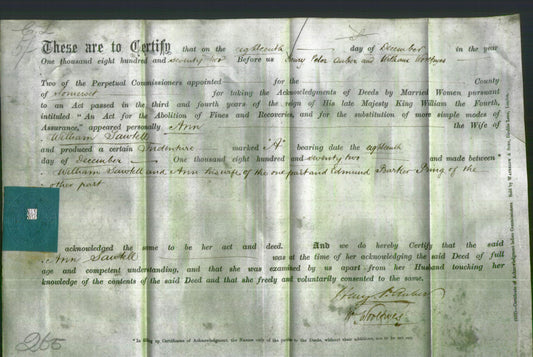 These are to Certify that on the eighteenth day of December in the year
One thousand eight hundred and seventy two Before us Henry Peter Auber and William
Two of the Perpetual Commissioners appointed for the County
of Somerset for taking the Acknowledgments of Deeds by Married Women pursuant
to an Act passed in the third and fourth years of the reign of His late Majesty King William the Fourth,
intituled "An Act for the Abolition of Fines and Recoveries, and for the substitution of more simple modes of
Assurance," appeared personally Ann the Wife of
William Sawtell
and produced a certain Indenture marked "A" bearing date the eighteenth
day of December One thousand eight hundred and seventy two and made between*
William Sawtell and Ann his wife of the one part and Edmund Barker of the
other part
acknowledged the same to be her act and deed. And we do hereby Certify that the said
Ann Sawtell was at the time of her acknowledging the said Deed of full
age and competent understanding, and that she was examined by us apart from her Husband touching her
knowledge of the contents of the said Deed and that she freely and voluntarily consented to the same.
265
*In filling up Certificates of Acknowledgment, the Names only of the parties to the Deeds, without their additions, are to be set out